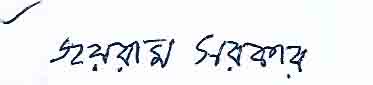 জয়রাম সরকার